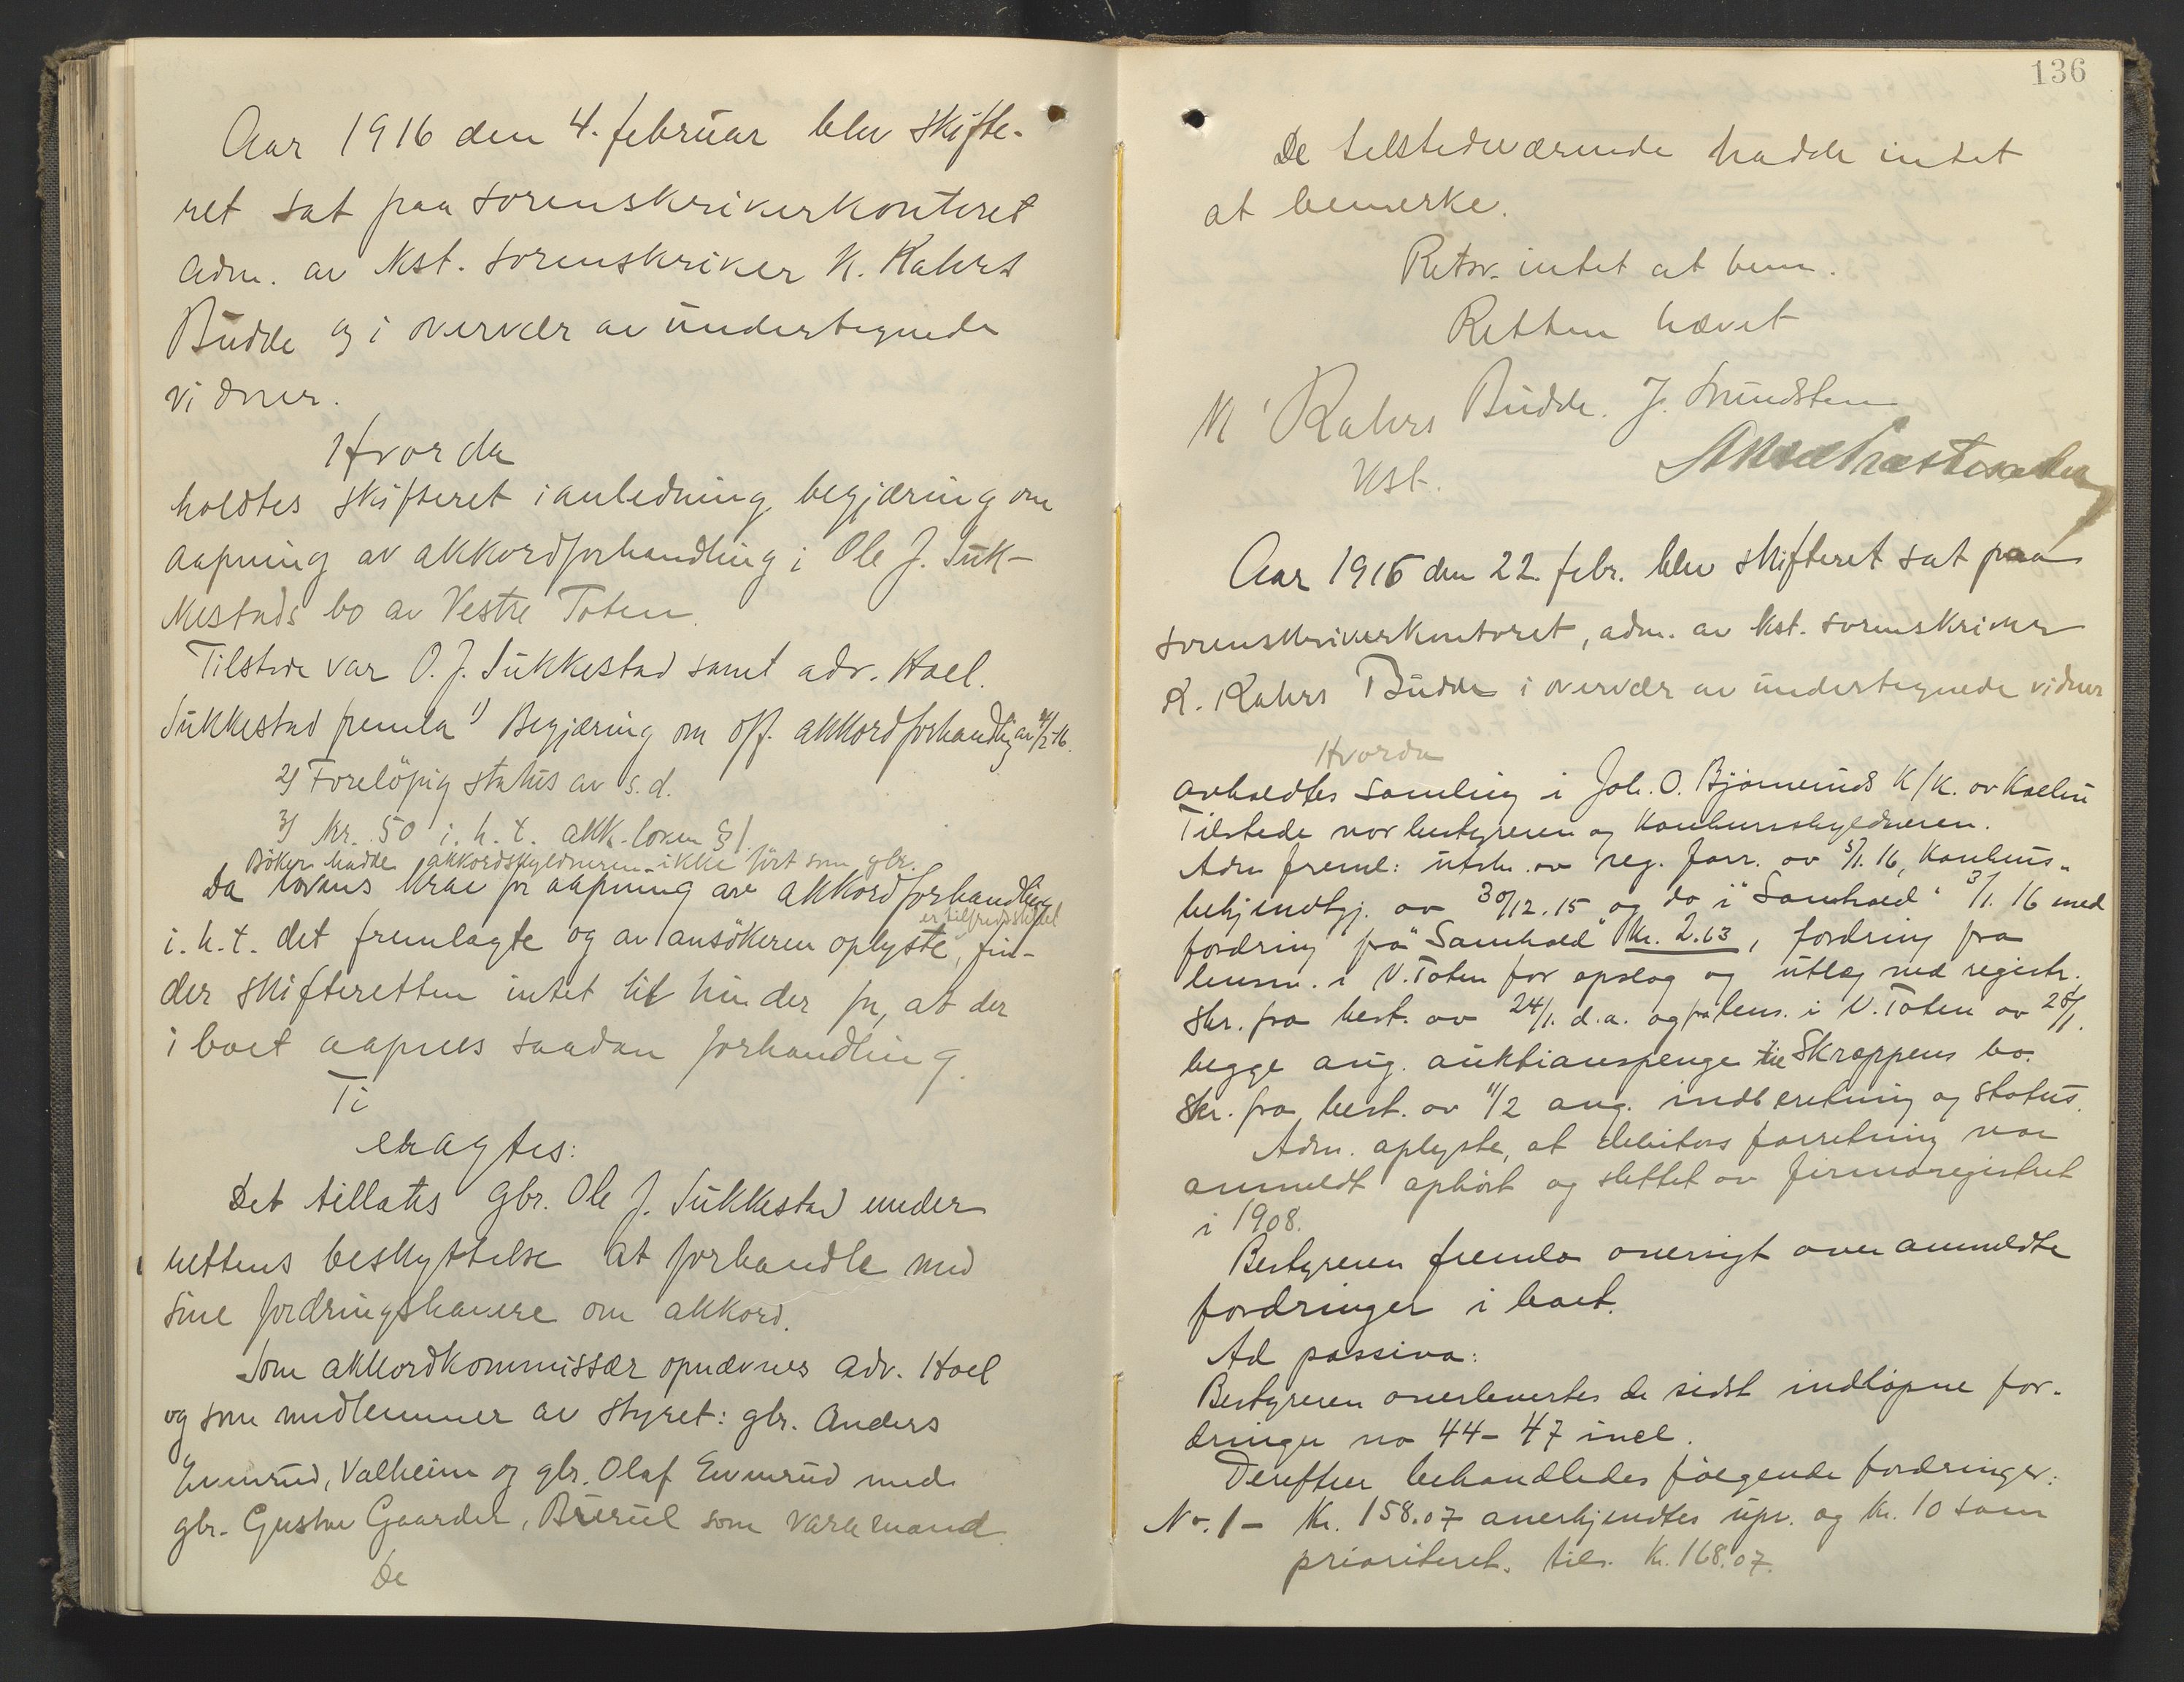 Aar 1916 den 4. februar blev skifte-
ret sat paa sorenskriverkontoret
adm. av kst. sorenskriver K. Kahrs
Budde og i overvær av undertegnede
vidner.
Hvorda
holdtes skifteret i anledning begjæring om
aapning av akkordforhandling i Ole J. Suk-
kestads bo av Vestre Toten.
Tilstede var O. J. Sukkestad samt adv. Hoel.
Sukkestad fremla 1) Begjæring om off. akkordforhandlig av 4/2-16.
2) Foreløpig status av s.d.
3) Kr. 50 i. h. t. akk.-loven § 1.
Bøker hadde akkordskyldneren ikke ført som gbr.
Da lovens krav for aapning av akkordforhandling
er tilfredsstillet
i. h. t. det fremlagte og av ansøkeren oplyste, fin-
der skifteretten intet til hinder for, at der
i boet aapnes saadan forhandling.
Ti
eragtes:
Det tillates gbr. Ole J. Sukkestad under
rettens beskyttelse at forhandle med
sine fordringshavere om akkord.
Som akkordkommissær opnævnes adv. Hoel
og som medlemmer av styret: gbr. Anders
Evenrud, Valheim og gbr. Olaf Evenrud med
gbr. Gustav Gaarder, som varamand.
De
136
De tilstedeværende hadde intet
at bemerke.
Retsv. intet at bem.
Retten hævet
K Kahrs Budde. J.
kst.
Aar 1916 den 22. febr. blev skifteret sat paa
sorenskriverkontoret, adm. av kst. sorenskriver
K. Kahrs Budde i overvær av undertegnede vidner
Hvorda
avholdtes samling i Joh. O. Bjørneruds K/K. av Kolbu
Tilstede var bestyreren og konkursskyldneren.
Adm freml: utskr. av reg. forr. av 5/1. 16, konkurs-
bekjendtgj. av 30/12.15 og do i "Samhold" 3/1. 16 med
fordring fra "Samhold" Kr. 2.63, fordring fra
lensm. i V. Toten for opslag og utlæg ved registr.
Skr. fra best. av 24/1. d.a. og fra lens. i V. Toten av 28/1.
begge ang. auktionspenge til Skræppens bo.
Skr. fra best. av 11/2 ang. indberetning og status.
Adm. oplyste, at debitors forretning var
anmeldt ophørt og slettet av firmaregistret
i 1908.
Bestyreren fremla oversigt over anmeldte
fordringer i boet.
Ad passiva:
Bestyreren overlevertes de sidst indløpne for-
dringer no 44-47 incl.
Derefter behandledes følgende fordringer:
No. 1 - Kr. 158.07 anerkjendtes upr. og kr. 10 som
prioriteret. tils. Kr. 168.07.